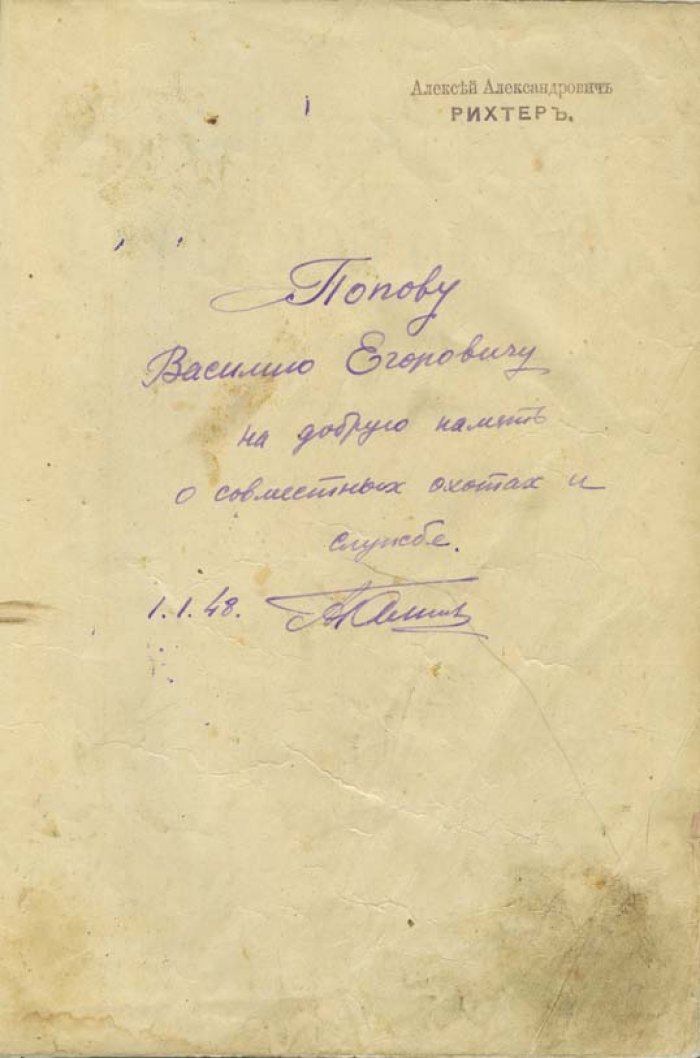 Алексѣй Александровичъ
РИХТЕРЪ.
Попову
Василию Егоровичу
на добрую память
о совместных охотах и
службе.
1.1.48.